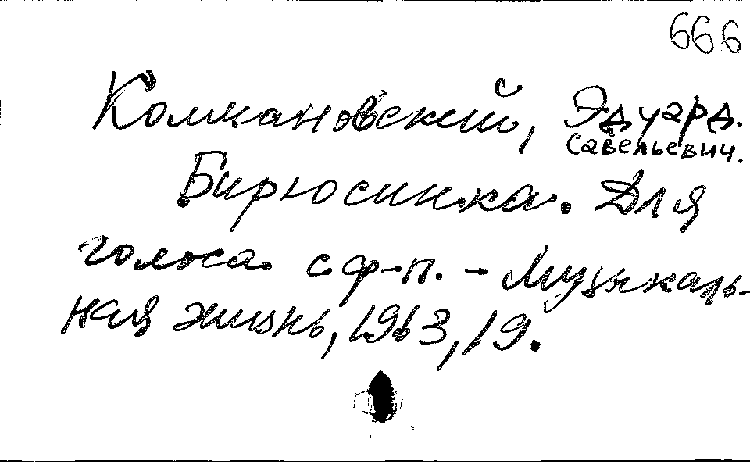 666
Колмановский, Эдуард.
Савельевич.
Бирюсинка. Для
голоса с ф-п. - Музыкаль-
ная жизнь, 1963, 19.